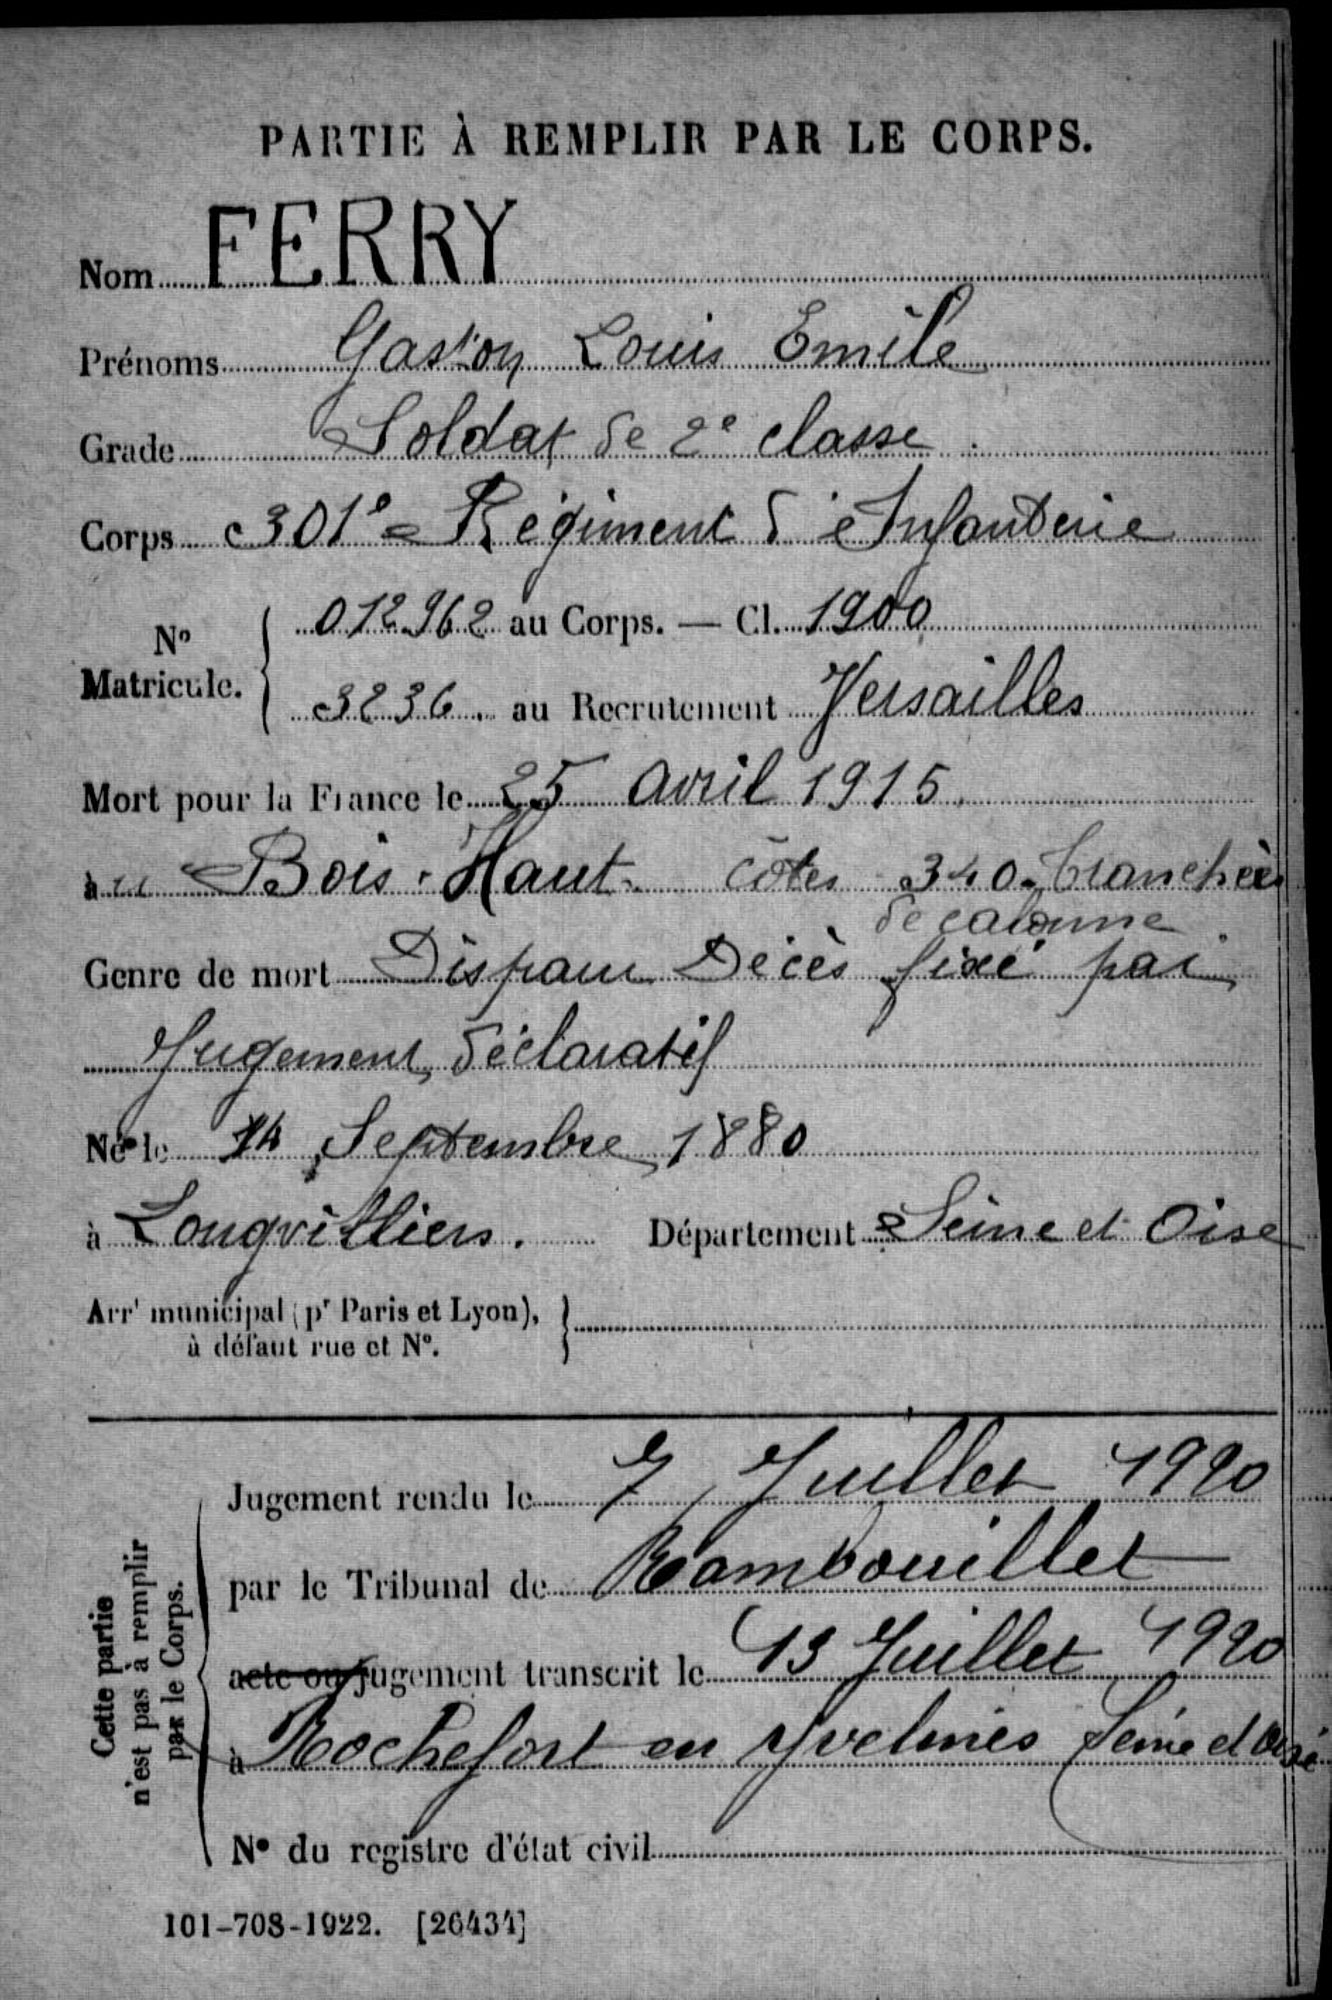 PARTIE À REMPLIR PAR LE CORPS.
Nom FERRY
Prénoms Gaston Louis Emile
Grade Soldat de 2e classe
Corps 301e Régiment d'Infanterie
No Matricule. 012962 au Corps. — Cl. 1900
3236. au Recrutement Versailles
Mort pour la France le 25 avril 1915
au Bois-Haut côtes 340. tranchées
de calonne
Genre de mort Disparu Décès fixé par
Jugement déclaratif
Né le 14 Septembre 1880
à Longvilliers. Département Seine et Oise
Arrt municipal (pr Paris et Lyon),
à défaut rue et No.
Jugement rendu le 7 Juillet 1920
par le Tribunal de Rambouillet
acte ou jugement transcrit le 13 Juillet 1920
à Rochefort en Yvelines Seine et Oise
No du registre d'état civil
Cette partie
n'est pas à remplir
par le Corps.
101-708-1922. [26434]